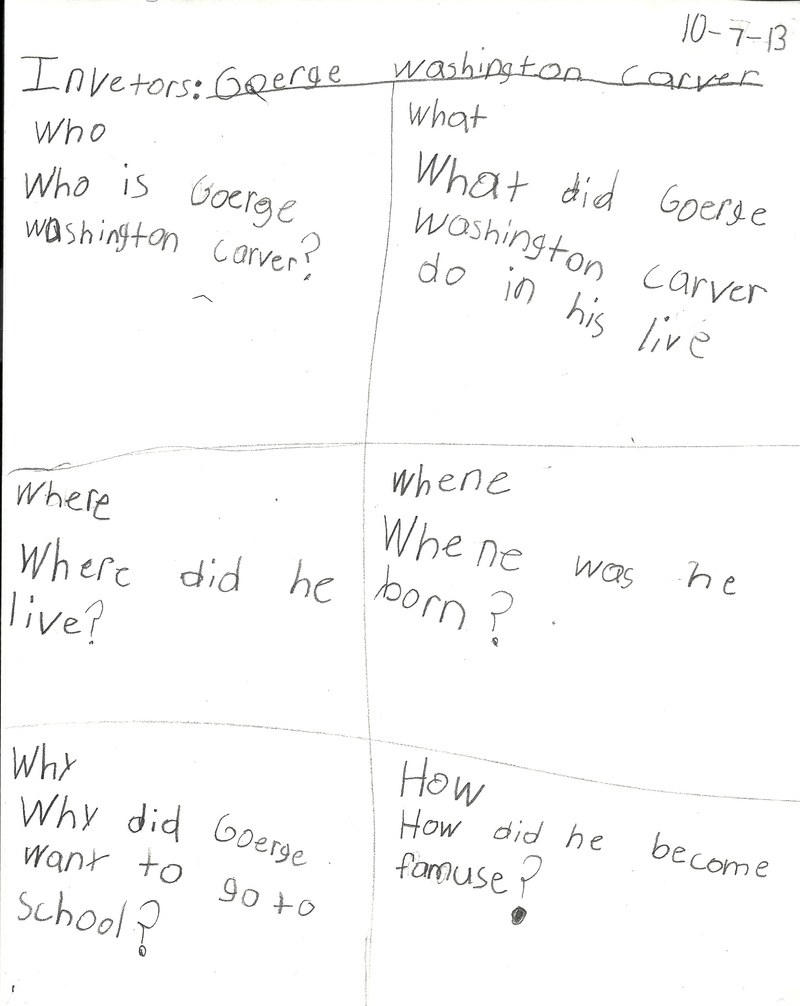 10-7-13
Invetors: Goerge Washington Carver
Who
Who is Goerge
washington carver?
What
What did Goerge
Washington Carver
do in his live
Where
Where did he
live?
Whene
Whene was he
born?
Why
Why did Goerge
want to go to
school?
How
How did he become
famuse?